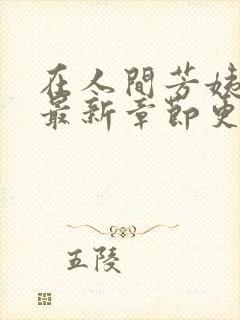 在人間芳姊
最新章節更
五陵